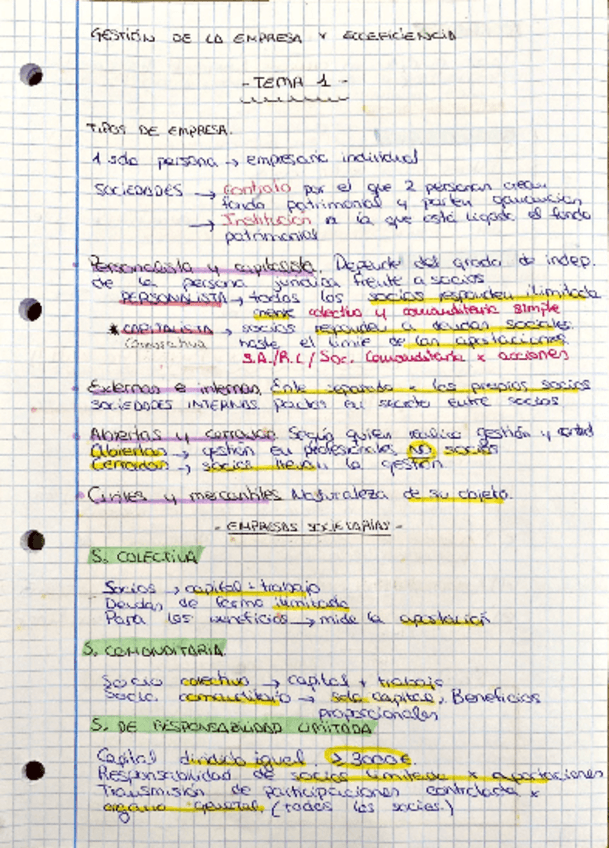 GESTIÓN DE LA EMPRESA Y ECOEFICIENCIA
- TEMA 1 -
TIPOS DE EMPRESA.
1 sola persona → empresario individual
SOCIEDADES → contrato por el que 2 personas crean
fondo patrimonial y parten ganancias
→ Institución a la que está ligado el fondo
patrimonial
Personalista y capitalista. Depende del grado de indep.
de la persona jurídica frente a socios
PERSONALISTA → todos los socios responden ilimitada
mente colectiva y comanditaria simple
* CAPITALISTA → socios responden a deudas sociales
hasta el límite de las aportaciones
S.A./R.L/Soc. Comanditaria x acciones
Externas e internas. Ente separado a los propios socios
SOCIEDADES INTERNAS pactan en secreto entre socios
Abiertas y cerradas. Según quien realice gestión y control
Abiertas → gestión en profesionales NO socios
Cerradas → socios llevan la gestión
Civiles y mercantiles Naturaleza de su objeto.
- EMPRESAS SOCIETARIAS -
S. COLECTIVA
Socios → capital + trabajo
Deudas de forma ilimitada
Para los beneficios → mide la aportación
S. COMANDITARIA
Socio colectivo → capital + trabajo
Socio comanditario → solo capital. Beneficios
proporcionales
S. DE RESPONSABILIDAD LIMITADA
Capital dividido igual. ≥ 3000€.
Responsabilidad de socios limitada x aportaciones
Transmisión de participaciones controlada x
órgano general. (todos los socios.)